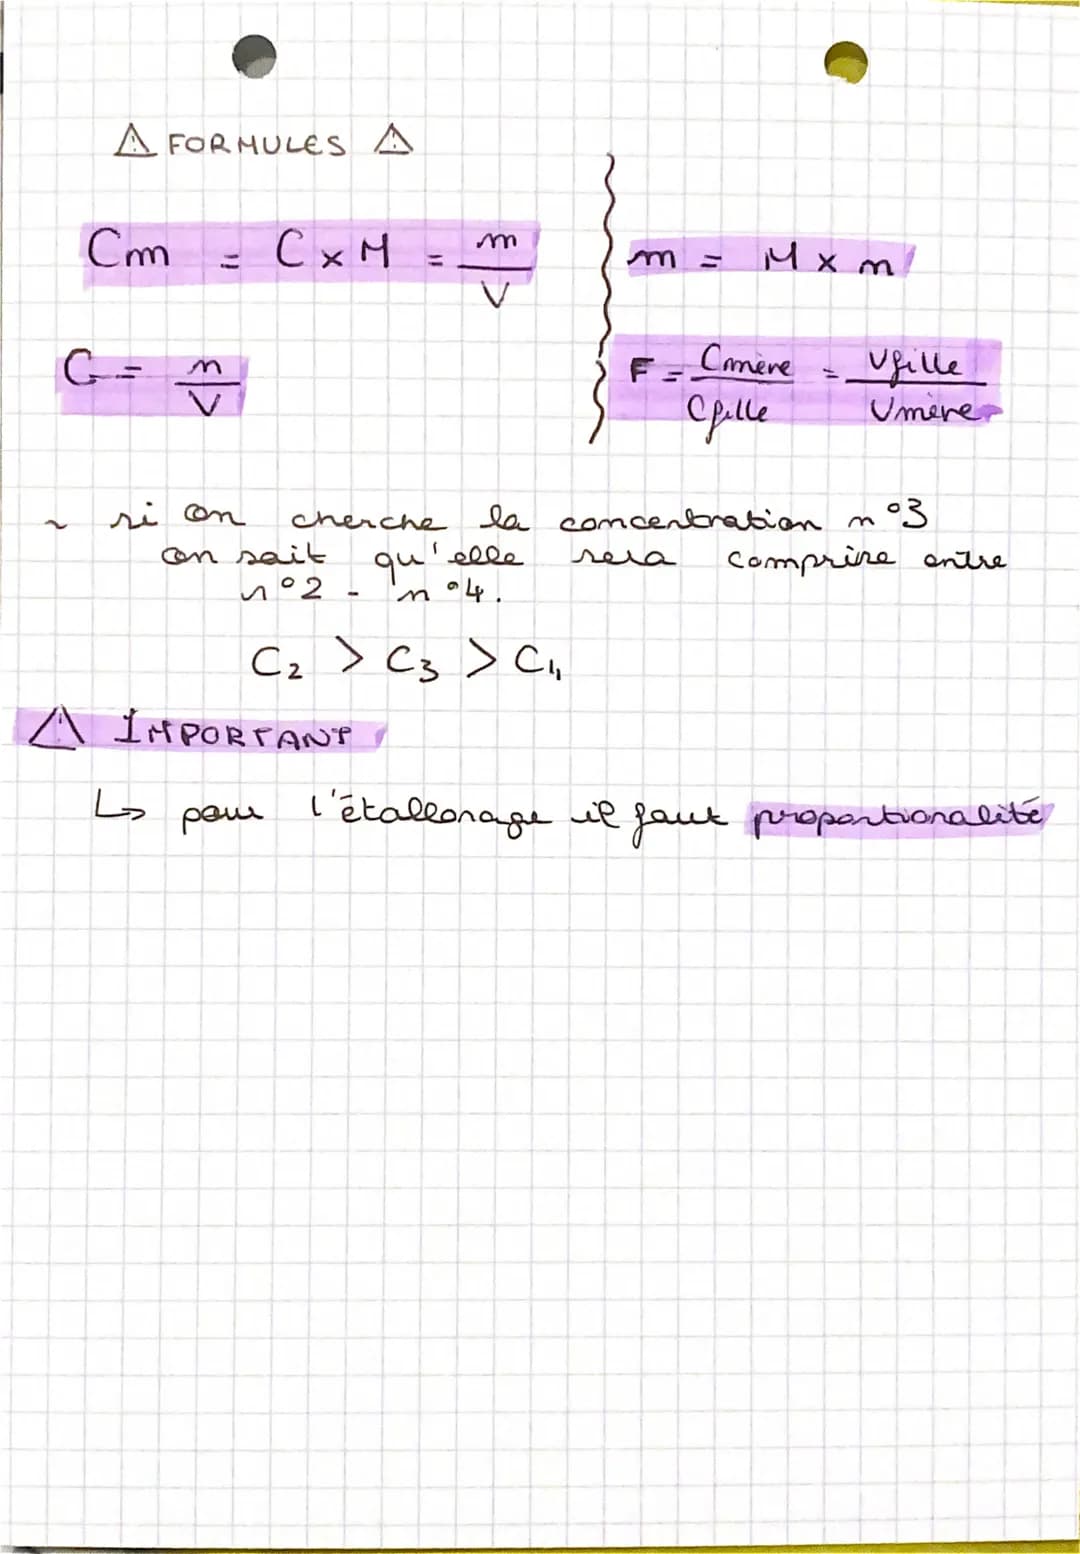 ⚠ FORMULES ⚠
Cm = C × M = m/V
m = M × n
C = n/V
F = Cmère/Cfille = Vfille/Vmère
~ si on cherche la concentration n°3
on sait qu'elle sera comprise entre
n°2 - n°4.
C₂ > C₃ > C₄
⚠ IMPORTANT
↳ pour l'étallonage il faut proportionalité